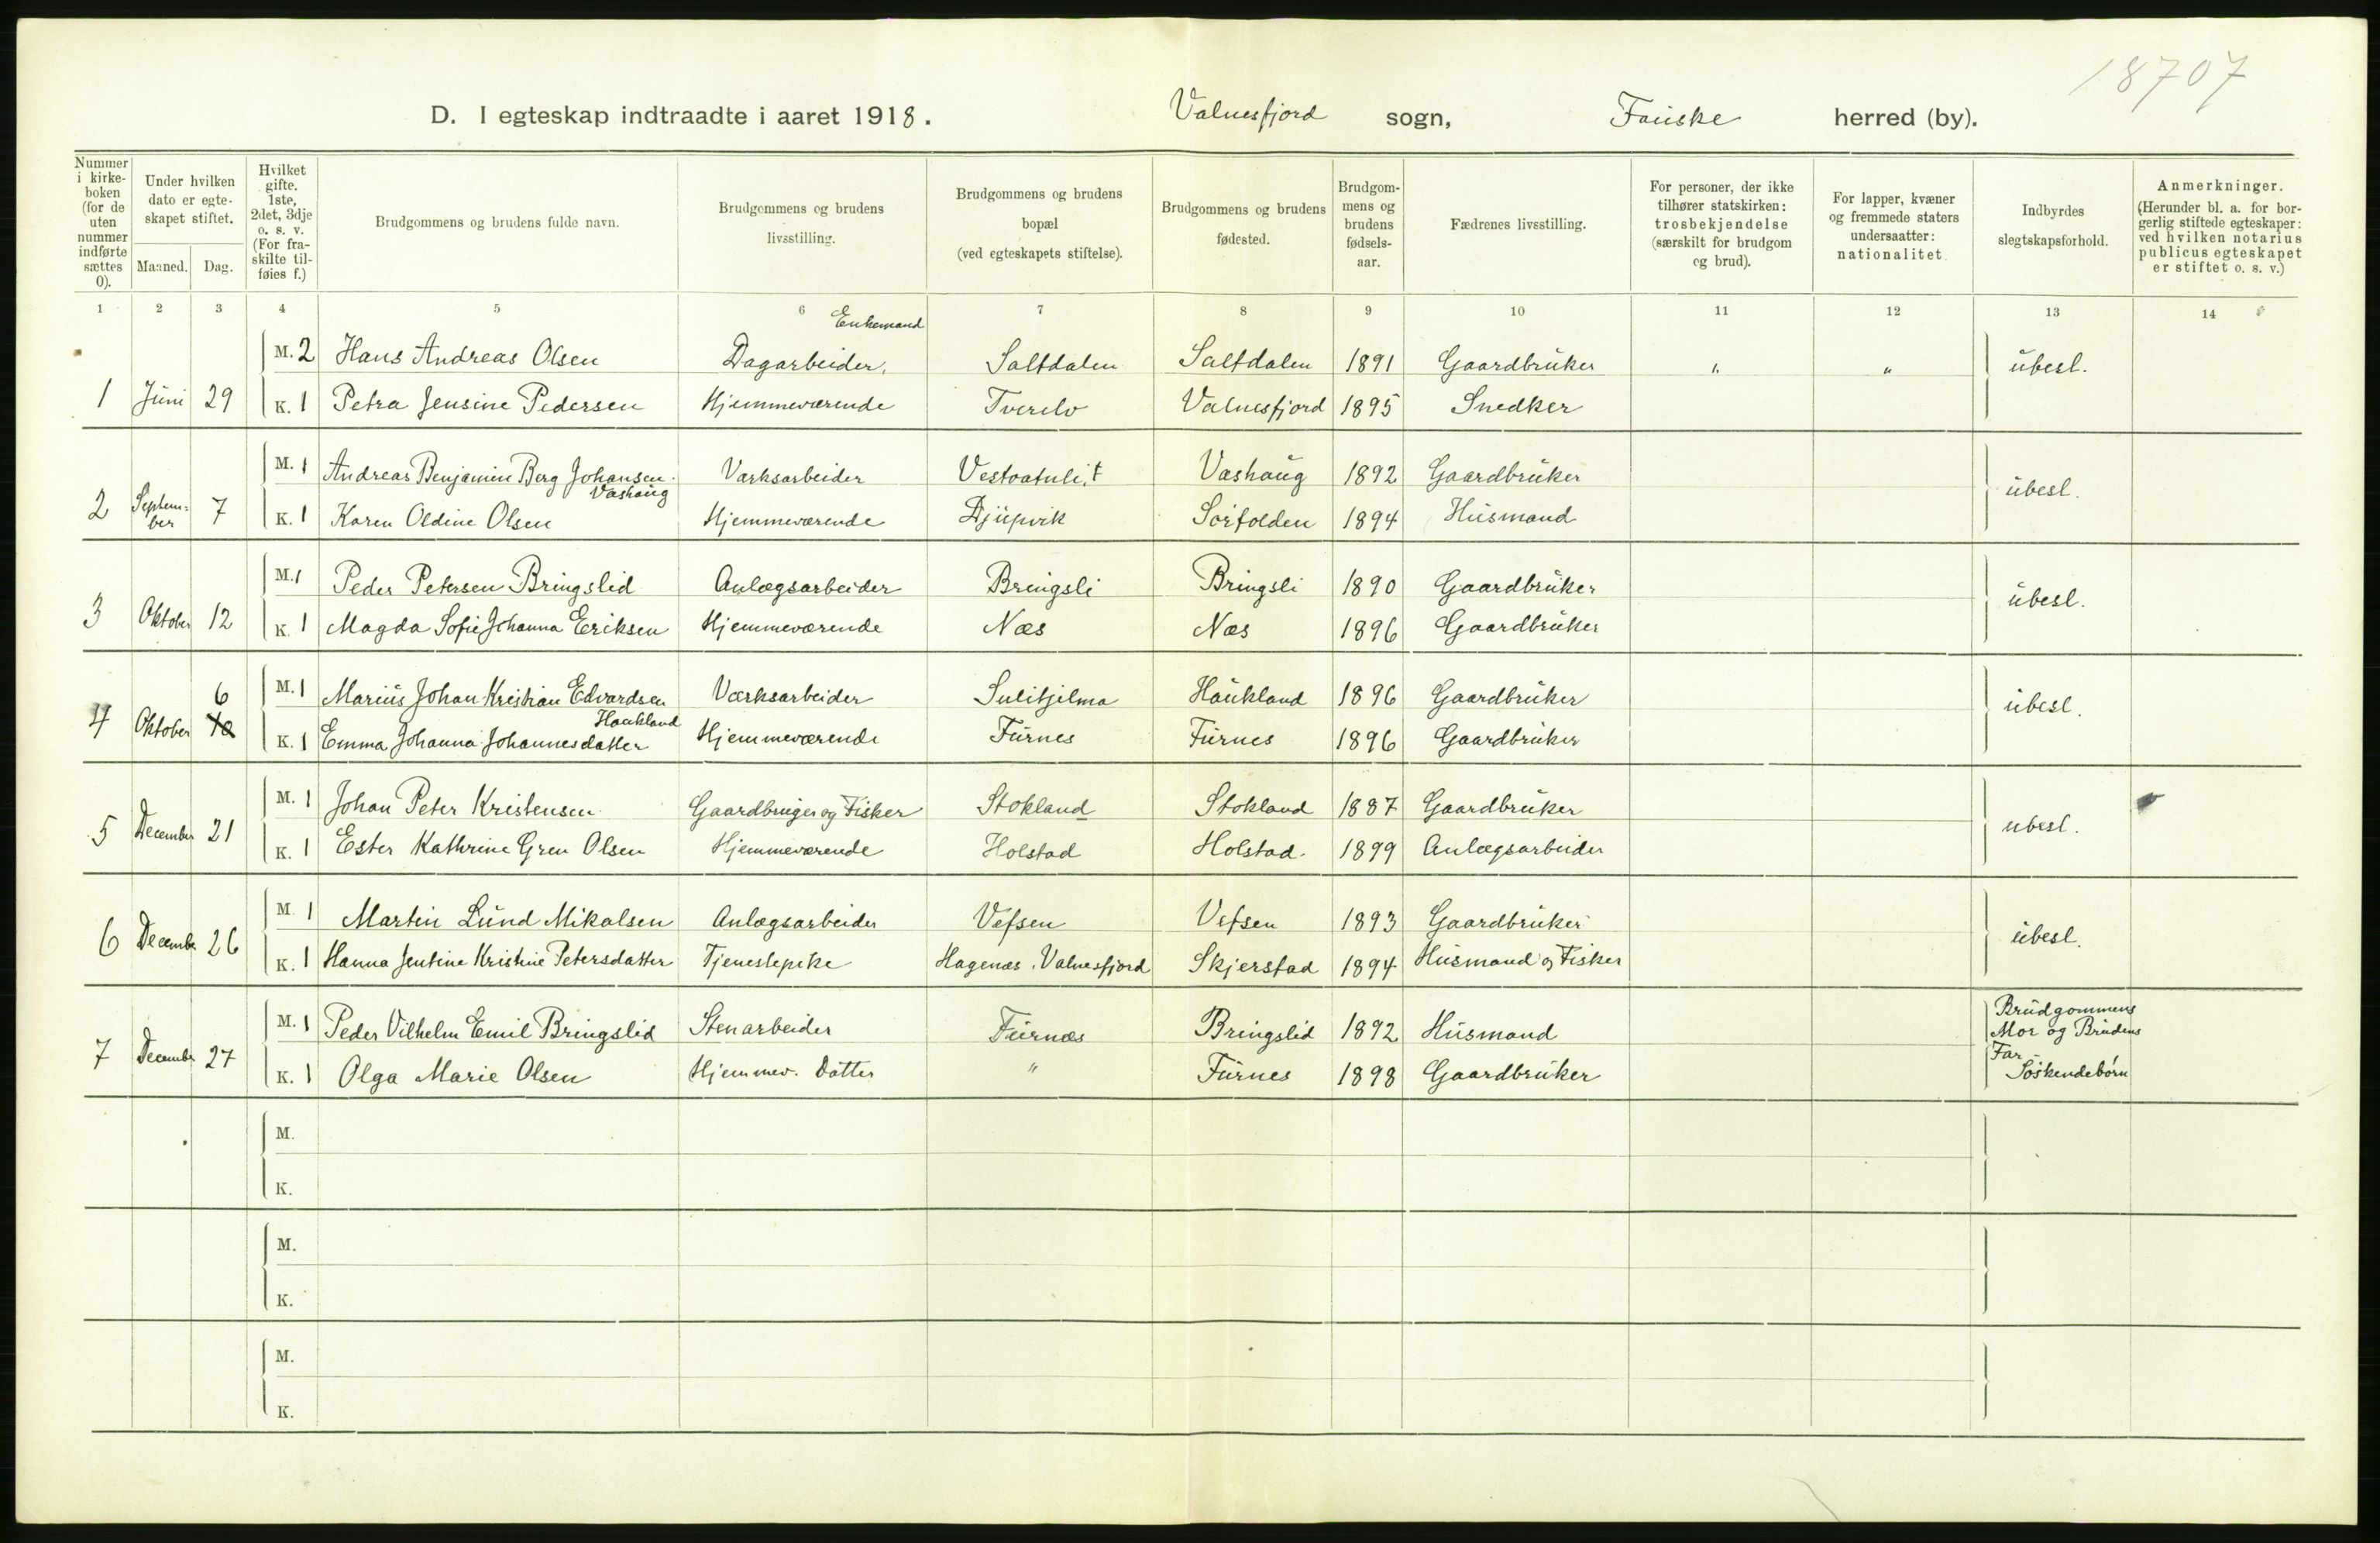 18707
D. I egteskap indtraadte i aaret 1918. Valnesfjord sogn, Fauske herred (by).
Nummer i kirke-boken (for de uten nummer indførte sættes 0).
Under hvilken dato er egte-skapet stiftet.
Maaned. Dag.
Hvilket gifte. 1ste, 2det, 3dje o. s. v. (For fra-skilte til-føies f.)
Brudgommens og brudens fulde navn.
Brudgommens og brudens livsstilling.
Brudgommens og brudens bopæl (ved egteskapets stiftelse).
Brudgommens og brudens fødested.
Brudgom-mens og brudens fødsels-aar.
Fædrenes livsstilling.
For personer, der ikke tilhører statskirken: trosbekjendelse (særskilt for brudgom og brud).
For lapper, kvæner og fremmede staters undersaatter: nationalitet
Indbyrdes slegtskapsforhold.
Anmerkninger. (Herunder bl. a. for bor-gerlig stiftede egteskaper: ved hvilken notarius publicus egteskapet er stiftet o. s. v.)
1 2 3 4 5 6 7 8 9 10 11 12 13 14
Enkemand
M. 2 Hans Andreas Olsen Dagarbeider, Saltdalen Saltdalen 1891 Gaardbruker " " ubesl.
1 Juni 29 K. 1 Petra Jensine Pedersen Hjemmeværende Tverelv Valnesfjord 1895 Snedker
M. 1 Andreas Benjamin Berg Johansen Varksarbeider Vashaug 1892 Gaardbruker ubesl.
Vashaug
2 Septem-ber 7 K. 1 Karen Oldine Olsen Hjemmeværende Djupvik Sørfolden 1894 Husmand
M. 1 Peder Petersen Bringslid Anlægsarbeider Bringsli Bringsli 1890 Gaardbruker ubesl.
3 Oktober 12 K. 1 Magda Sofie Johanna Eriksen Hjemmeværende Næs Næs 1896 Gaardbruker
6 M. 1 Marius Johan Kristian Edvardsen Værksarbeider Sulitjelma Haukland 1896 Gaardbruker ubesl.
Haukland
4 Oktober K. 1 Emma Johanna Johannesdatter Hjemmeværende Furnes Furnes 1896 Gaardbruker
M. 1 Johan Peter Kristensen Gaardbruger og Fisker Stokland Stokland 1887 Gaardbruker ubesl.
5 December 21 K. 1 Ester Kathrine Gren Olsen Hjemmeværende Holstad Holstad 1899 Anlægsarbeider
M. 1 Martin Lund Mikalsen Anlægsarbeider Vefsen Vefsen 1893 Gaardbruker ubesl.
6 December 26 K. 1 Hanna Jentine Kristine Petersdatter Tjenestepike Hagenæs, Valnesfjord Skjerstad 1894 Husmand og Fisker
M. 1 Peder Vilhelm Emil Bringslid Stenarbeider Furnæs Bringslid 1892 Husmand Brudgommens Mor og Brudens
7 December 27 K. 1 Olga Marie Olsen Hjemmev. Datter " Furnes 1898 Gaardbruker Far Søskendebørn
M.
K.
M.
K.
M.
K.